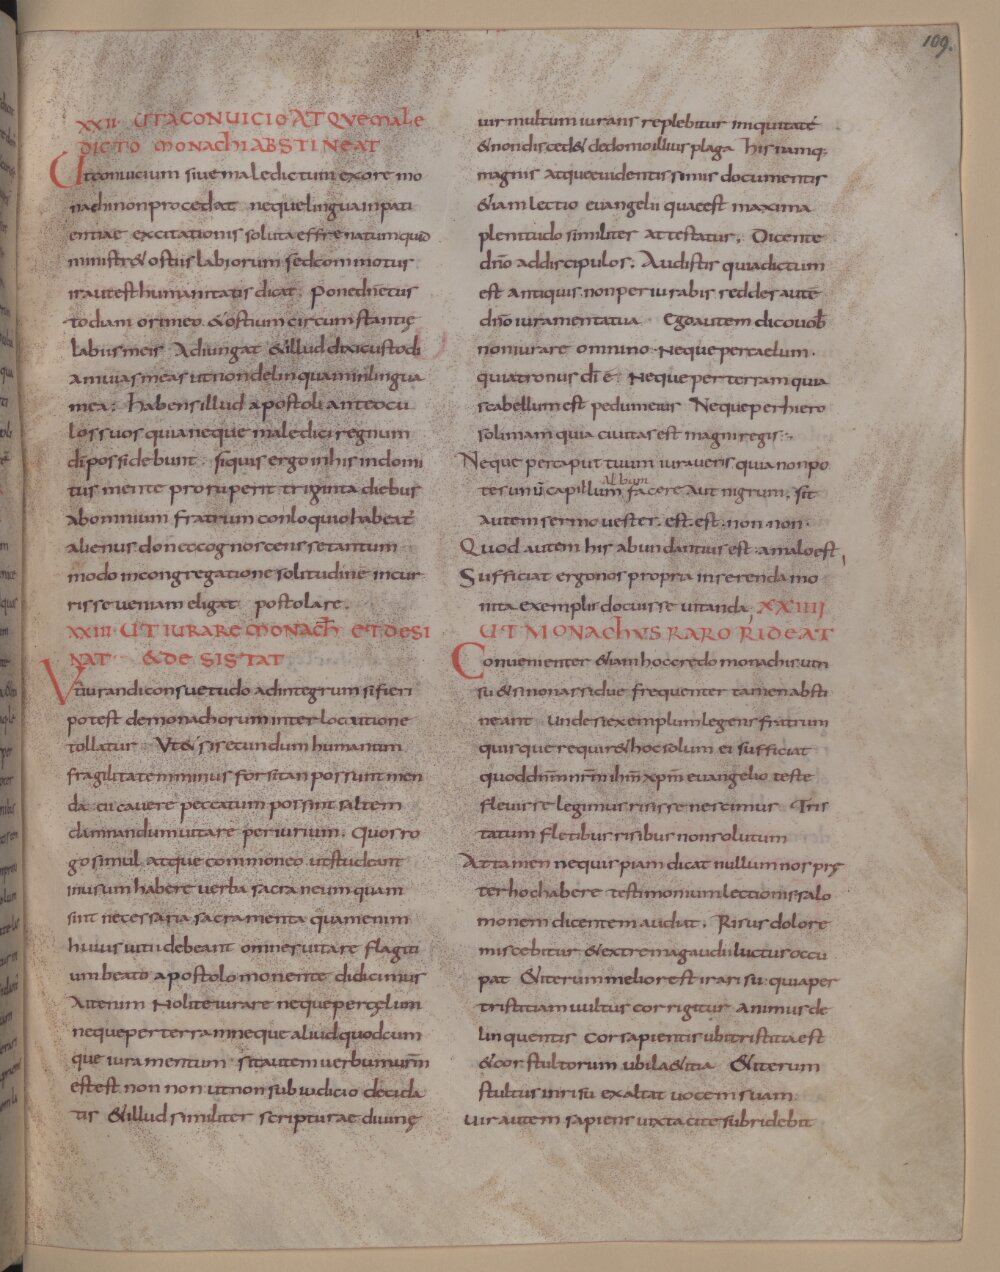 109.
XXII UT A CONUICIO ATQVE MALE
DICTO MONACHI ABSTINEAT
Ut conuicium siue maledictum ex ore mo
nachi non procedat neque lingua inpati
entiae excitationis soluta effrenatum quid
ministr& ostiis labiorum sed commotus
ira ut est humanitatis dicat. Pone dne cus
todiam ori meo & ostium circumstantię
labiis meis Adiungat & illud dixi custodi
am uias meas ut non delinquam in lingua
mea. habens illud apostoli ante ocu
los suos quia neque maledici regnum
di possidebunt. si quis ergo in his indomi
tus mente proruperit triginta diebus
ab omnium fratrum conloquio habeat
alienus. donec cognoscens se tantum
modo in congregatione solitudine incur
risse ueniam eligat postolare.
XXIII UT IURARE MONACH ET DESI
NAT & DESISTAT
Ut iurandi consuetudo ad integrum si fieri
potest de monachorum inter locutione
tollatur Ut & si secundum humanam
fragilitatem minus forsitan possunt men
da cii cauere peccatum possint saltem
damnandum uitare periurium. Quos ro
go simul atque commoneo ut studeant
in usum habere uerba sacra ne umquam
sint necessaria sacramenta quam enim
huius uitii debeant omnes uitare flagiti
um beato apostolo monente didicimus
Aitenim Nolite iurare neque per cęlum
neque per terram neque aliud quodcum
que iuramentum sit autem uerbum urm
est est non non ut non sub iudicio decida
tis & illud similiter scripturae diuinę
uir multum iurans replebitur iniquitate
& non disced& de domo illius plaga his namq.
magnis atque euidentissimis documentis
& iam lectio euangelii quae est maxima
plenitudo similiter attestatur. Dicente
dno ad discipulos. Audistis quia dictum
est antiquis. non periurabis reddes aute
dno iuramenta tua Ego autem dico uob
non iurare omnino. Neque per caelum.
quia tronus di e. Neque per terram quia
scabellum est pedum eius Neque per hiero
solimam quia ciuitas est magni regis.
Neque per caput tuum iuraueris quia non po
album
tes unu capillum facere aut nigrum. sit
autem sermo uester. est. est. non. non.
Quod autem his abundantius est. a malo est
Sufficiat ergo nos propria inserenda mo
nita exemplis docuisse uitanda XXIIII
UT MONACHVS RARO RIDEAT
Convenienter & iam hoc credo monachis ut ri
su & si non assidue frequenter tamen absti
neant Unde si exemplum legens fratrum
quisque requir& hoc solum ei sufficiat
quod dnm nrm ihm xpm euangelio teste
fleuisse legimus risisse nescimus Tris
tatum fletibus risibus non solutum
Attamen nequispiam dicat nullum nos prę
ter hoc habere testimonium lectionis salo
monem dicentem audiat. Risus dolore
miscebitur & extrema gaudii luctus occu
pat & iterum melior est ira risu. quia per
tristitiam uultus corrigitur animus de
linquentis Cor sapientis ubi tristitia est
& cor stultorum ubi la&itia & iterum
stultus in risu exaltat uocem suam
uir autem sapiens uix tacite subridebit